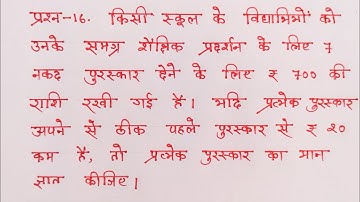 प्रश्न-16. किसी स्कूल के विद्यार्थियों को
उनके समग्र शैक्षिक प्रदर्शन के लिए 7
नकद पुरस्कार देने के लिए ₹ 700 की
राशि रखी गई है। यदि प्रत्येक पुरस्कार
अपने से ठीक पहले पुरस्कार से ₹ 20
कम है, तो प्रत्येक पुरस्कार का मान
ज्ञात कीजिए।